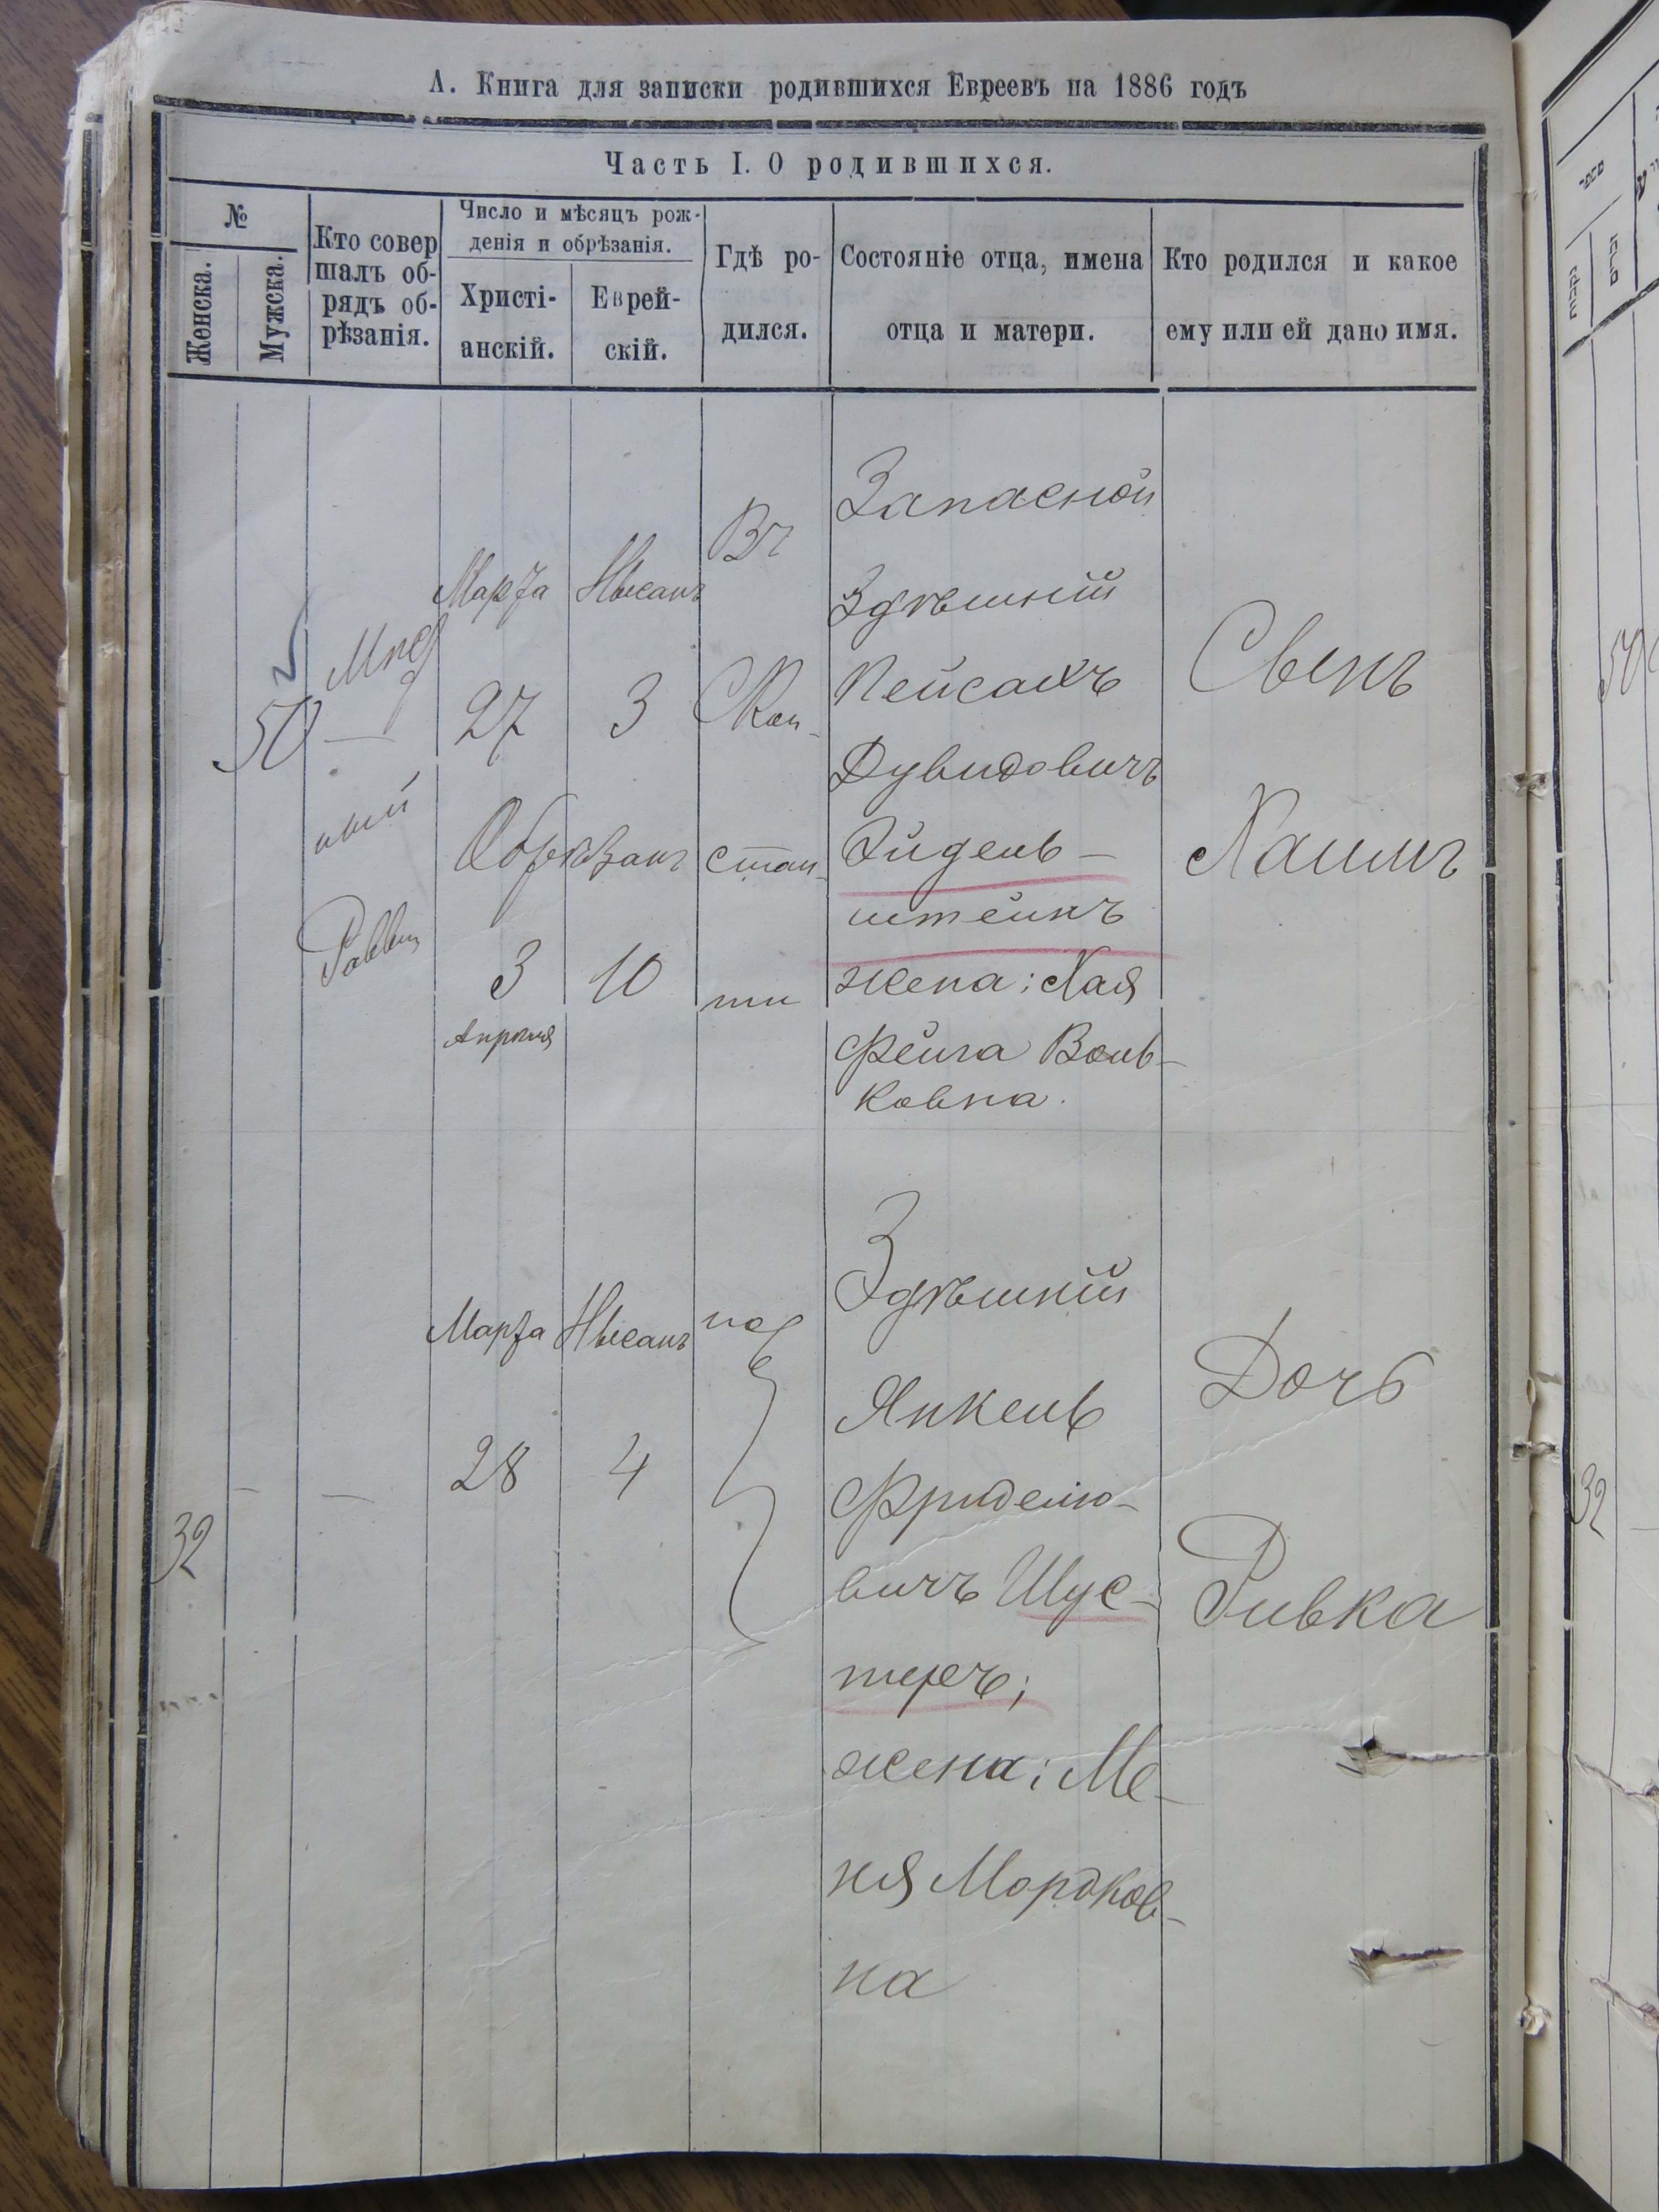 А. Книга для записки родившихся Евреевъ на 1886 годъ
Часть I. О родившихся.
№
Женска.
Мужска.
Кто совер
шалъ об-
рядъ об-
рѣзанія.
Число и мѣсяцъ рож-
денія и обрѣзанія.
Христі-
анскій.
Еврей-
скій.
Гдѣ ро-
дился.
Состояніе отца, имена
отца и матери.
Кто родился и какое
ему или ей дано имя.
50
ный
Раввин
Марта
27
Обрѣзанъ
3
Апрѣля
Нысанъ
3
10
Въ
Кон-
стан-
ти
Запасной
Здѣшній
Пейсахъ
Дувидовичъ
Эйдель-
штейнъ
жена: Хая
Фейга Воль-
ковна.
Сынъ
Хаимъ
32
—
—
Марта
28
Нысанъ
4
Здѣшній
Янкель
Фридель-
вичъ Шус-
теръ;
жена: Ме-
ня Мордков-
на
Дочь
Ривка
50
32